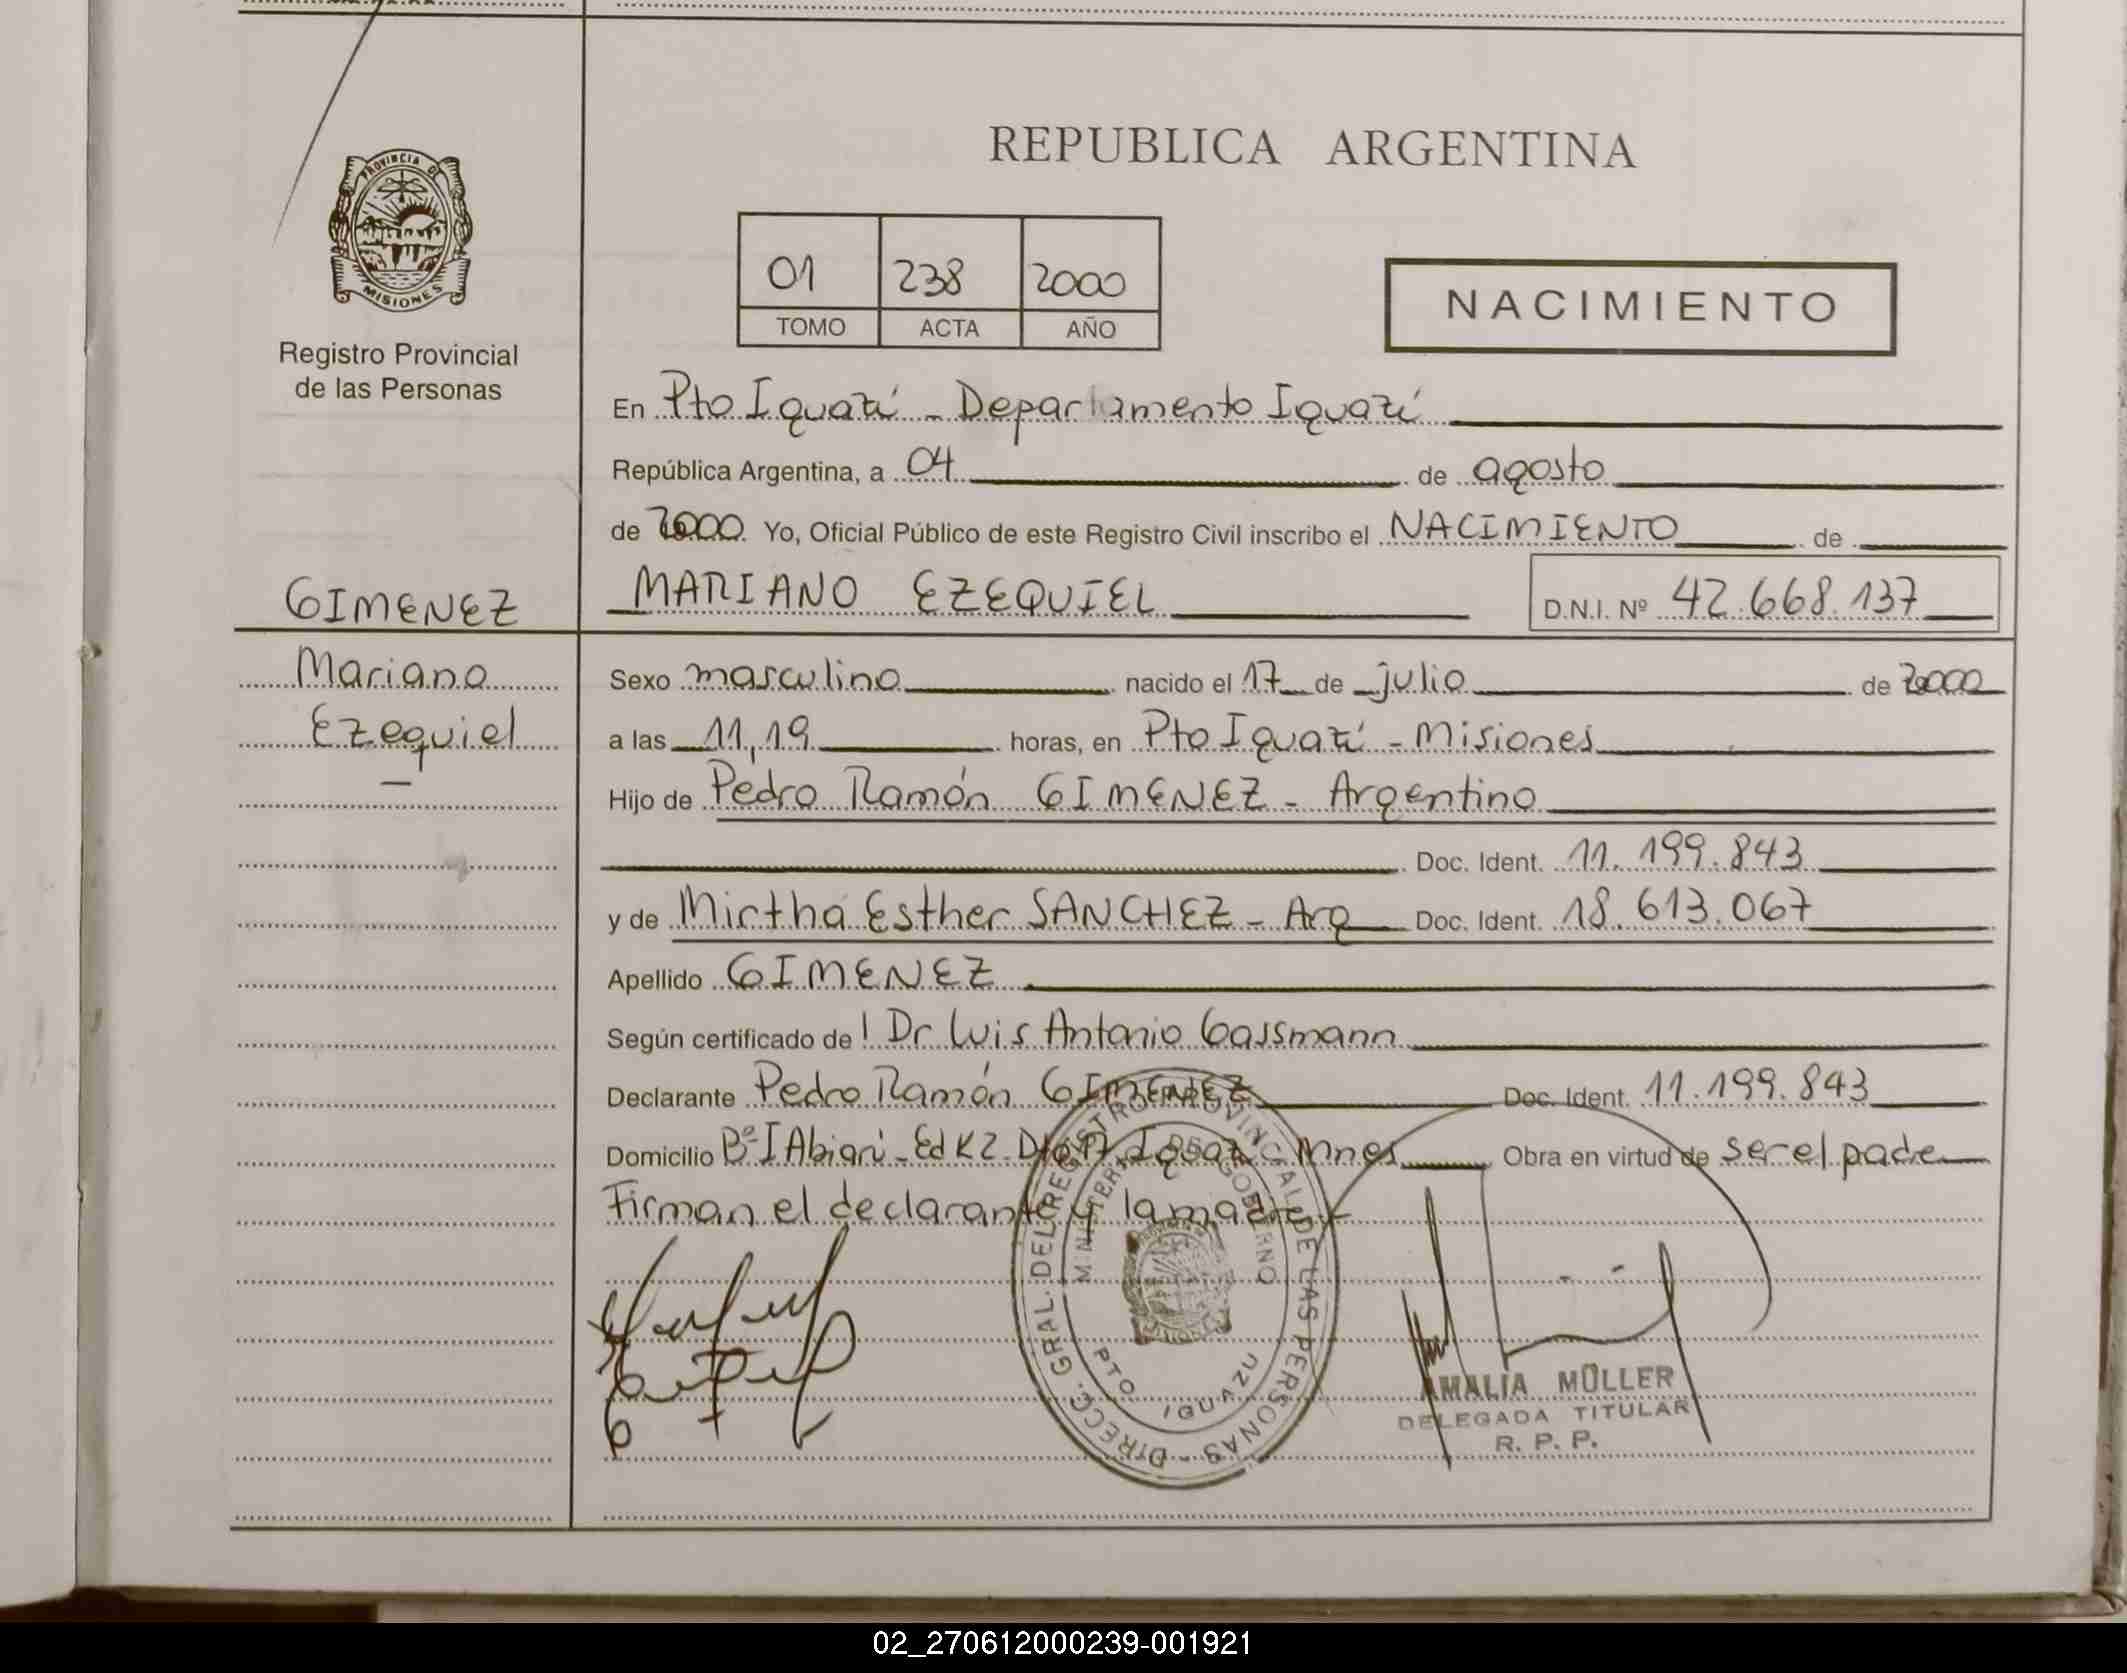 PROVINCIA D
MISIONES
Registro Provincial
de las Personas
REPUBLICA ARGENTINA
01 238 2000
TOMO ACTA AÑO
NACIMIENTO
En Pto Iguazú - Departamento Iguazú
República Argentina, a 04 de agosto
de 2000 Yo, Oficial Público de este Registro Civil inscribo el NACIMIENTO de
GIMENEZ
Mariano
Ezequiel
MARIANO EZEQUIEL D.N.I. Nº 42.668.137
Sexo masculino nacido el 17 de julio de 2000
a las 11,19 horas, en Pto Iguazú - Misiones
Hijo de Pedro Ramón GIMENEZ - Argentino
Doc. Ident. 11.199.843
y de Mirtha Esther SANCHEZ - Arg Doc. Ident. 18.613.067
Apellido GIMENEZ
Según certificado de l Dr Luis Antonio Gassmann
Declarante Pedro Ramón GIMENEZ Doc. Ident. 11.199.843
Domicilio Bº I Abiarí - Ed K2 Mnes Obra en virtud de ser el padre
Firman el declarante y la madre
DIRECC. GRAL. DEL REGISTRO PROVINCIAL DE LAS PERSONAS -
MINISTERIO DE GOBIERNO
PTO IGUAZU
AMALIA MÜLLER
DELEGADA TITULAR
R. P. P.
02_270612000239-001921